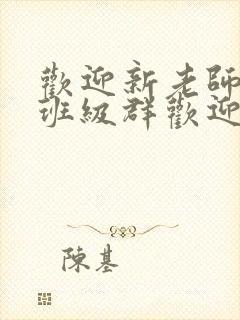 歡迎新老師
班級群歡迎
陳基